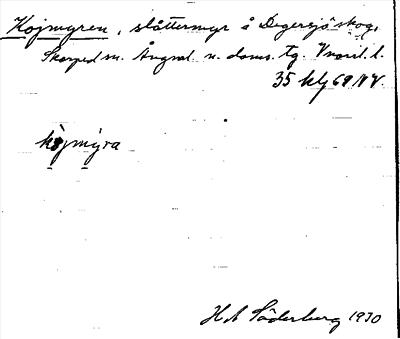 Kojmyren, slåttermyr å Degersjö skog,
Skorped sn. Ångml. n. doms. tg. Vnorrl. l.
35 klj 69 NV.
kojmyra
H A Söderberg 1930